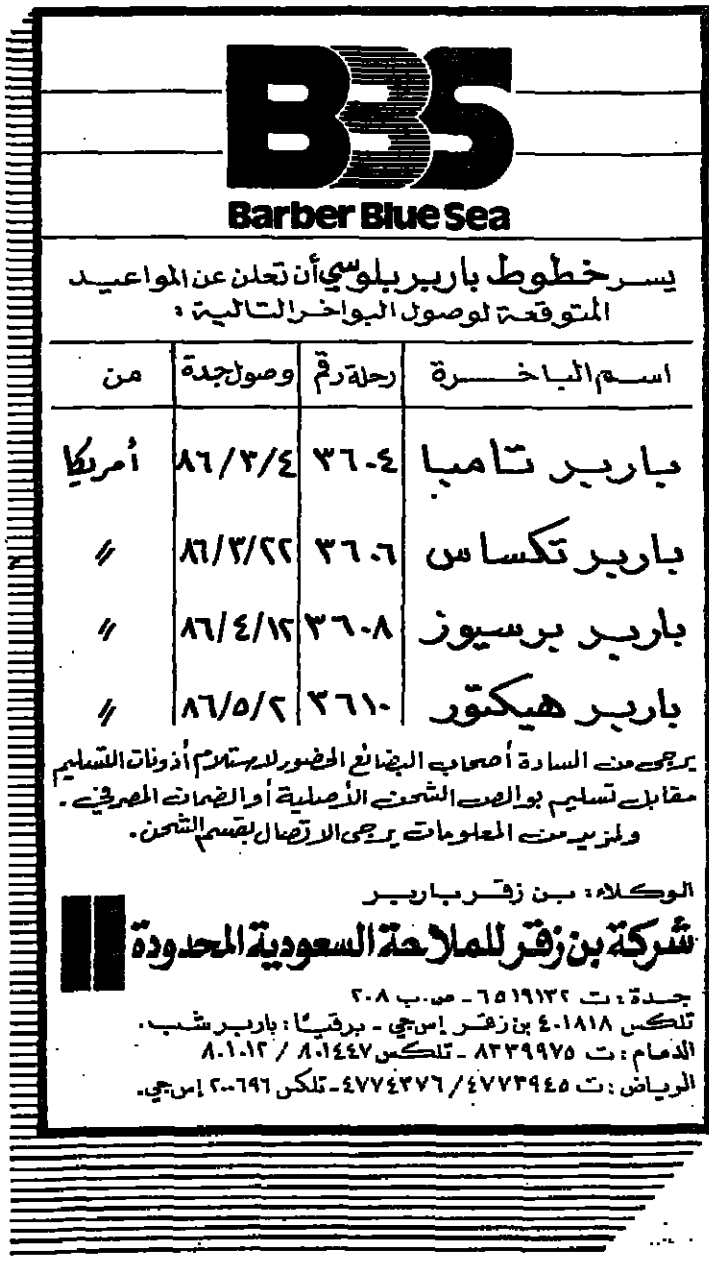 BBS
Barber Blue Sea
يسر خطوط باربر بلوسي أن تعلن عن المواعيد
المتوقعة لوصول البواخر التالية :
اسم الباخرة رحلة رقم وصول جدة من
باربر تامبا ٣٦٠٤ ٨٦/٣/٤ أمريكا
باربر تكساس ٣٦٠٦ ٨٦/٣/٢٢ //
باربر برسيوز ٣٦٠٨ ٨٦/٤/١٢ //
باربر هيكتور ٣٦١٠ ٨٦/٥/٢ //
يرجى من السادة أصحاب البضائع الحضور لاستلام أذونات التسليم
مقابل تسليم بوالص الشحن الأصلية أو الضمان المصرفي .
ولمزيد من المعلومات يرجى الاتصال بقسم الشحن .
الوكلاء : بن زقر باربر
شركة بن زقر للملاحة السعودية المحدودة
جدة : ت ٦٥١٩١٣٢ - ص.ب ٢٠٨
تلكس ٤٠١٨١٨ بن زقر إس جي - برقيًا : باربر شب .
الدمام : ت ٨٣٣٩٩٧٥ - تلكس ٨٠١٤٤٧ / ٨٠١٠١٢
الرياض : ت ٤٧٧٣٩٤٥ / ٤٧٧٤٣٧٦ - تلكس ٢٠٠٦٩٦ إس جي .